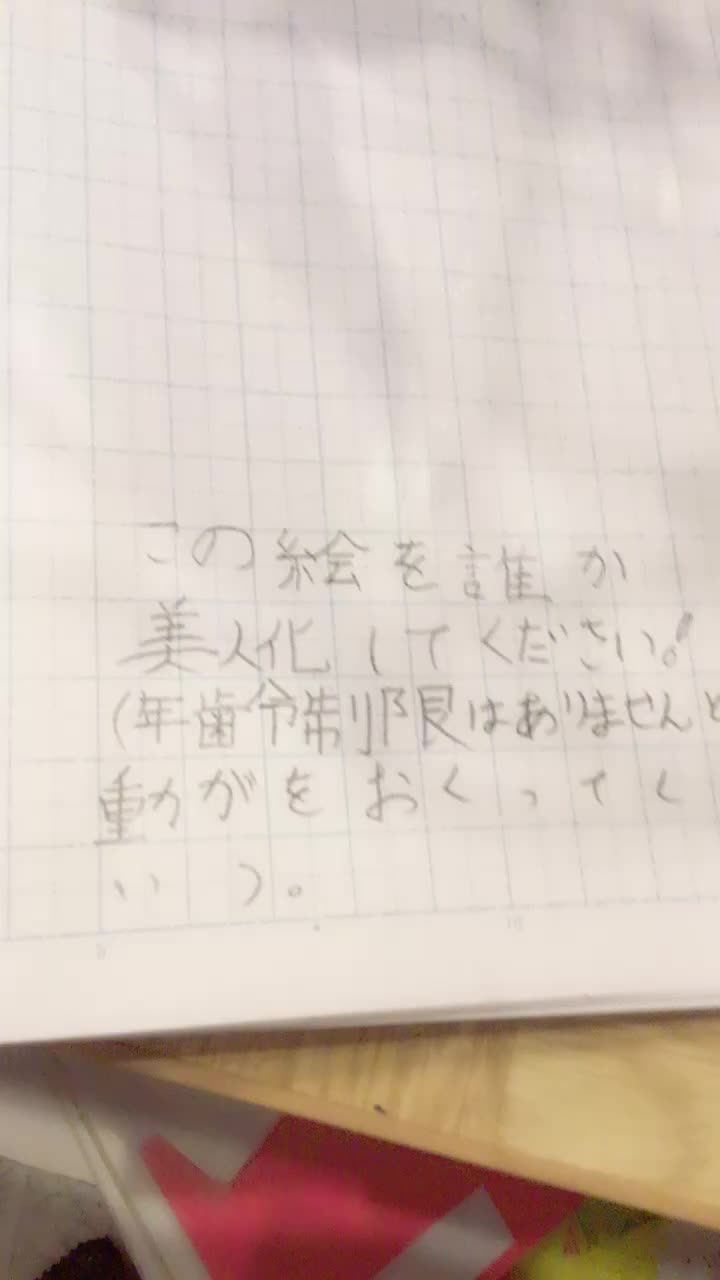 この絵を誰か
美人化してください!
(年齢制限はありませんと
動がをおくってく
い)。